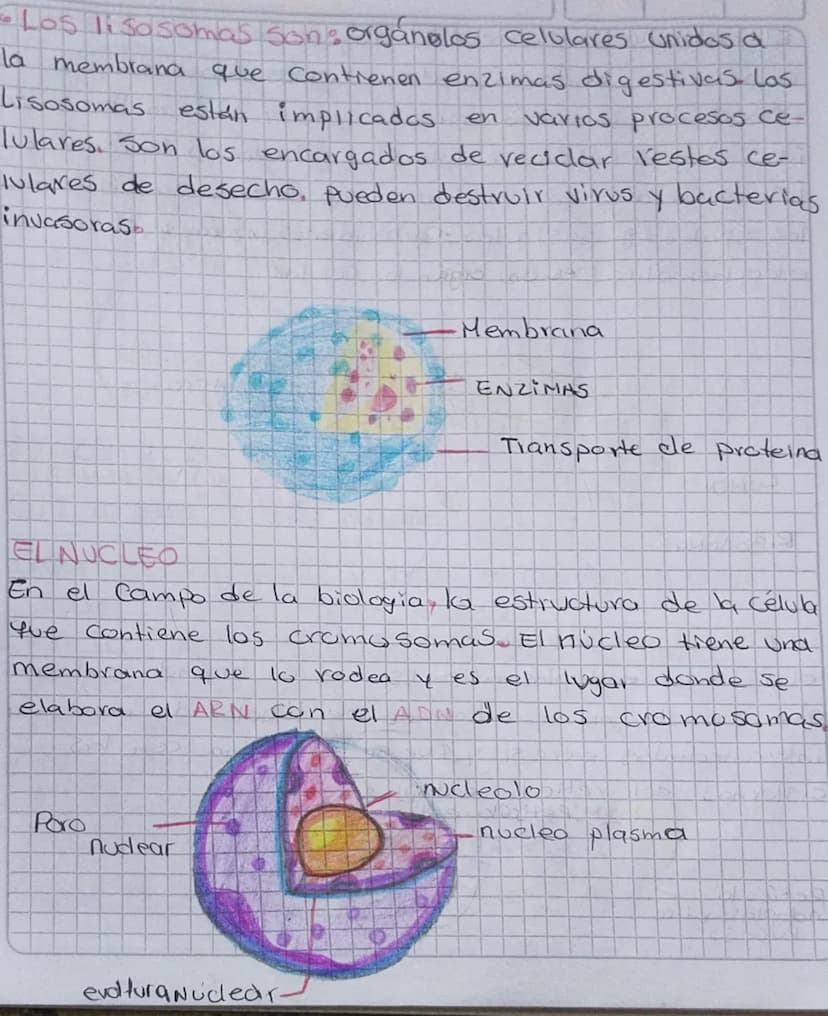 Los lisosomas son: orgánelos celulares unidos a
la membrana que contienen enzimas digestivas. Los
Lisosomas están implicados en varios procesos ce-
lulares. Son los encargados de reciclar restos ce-
lulares de desecho. Pueden destruir virus y bacterias
invasoras.
Membrana
ENZiMAS
Transporte de proteina
EL NUCLEO
En el Campo de la biologia, la estructura de la célula
que contiene los cromosomas. El núcleo tiene una
membrana que lo rodea y es el lugar donde se
elabora el ARN con el ADN de los cromosomas.
nucleolo
Poro
nuclear
nucleo plasma
evoltura Nuclear